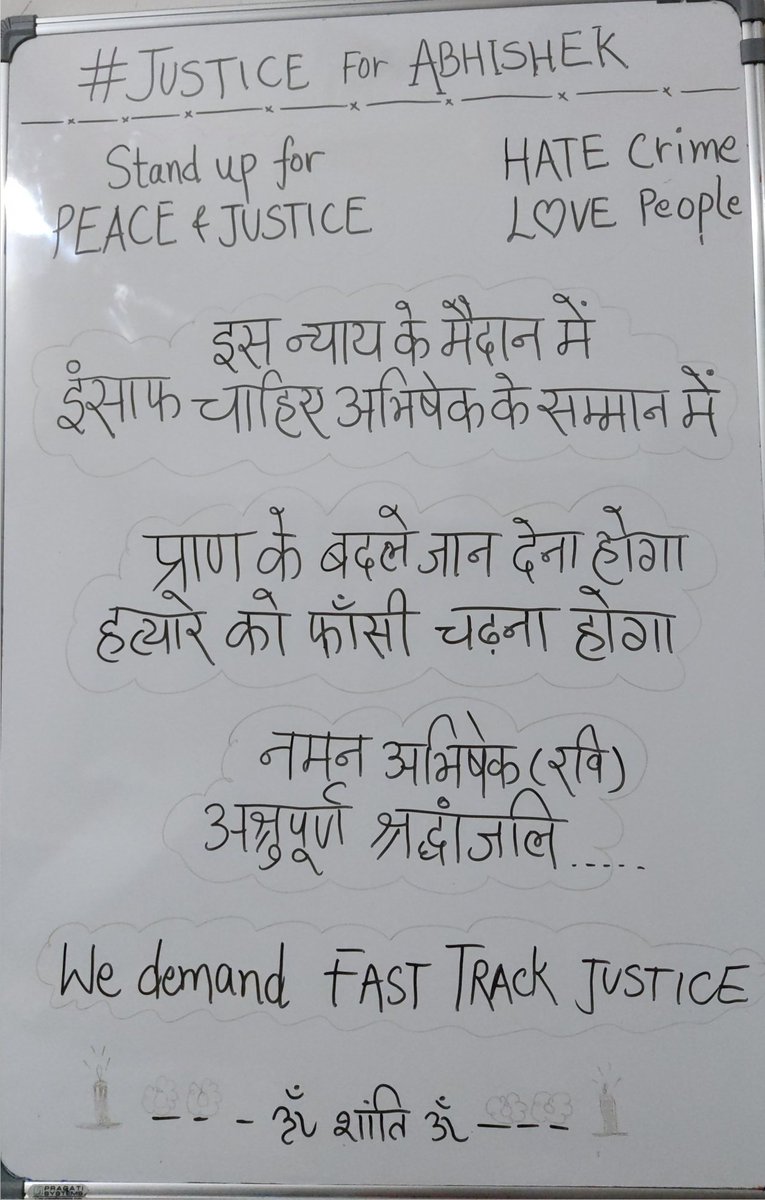 #JUSTICE FOR ABHISHEK
Stand up for
PEACE & JUSTICE
HATE Crime
LOVE People
इस न्याय के मैदान में
इंसाफ चाहिए अभिषेक के सम्मान में
प्राण के बदले जान देना होगा
हत्यारे को फाँसी चढ़ना होगा
नमन अभिषेक (रवि)
अश्रुपूर्ण श्रद्धांजलि .....
We demand FAST TRACK JUSTICE
--- ॐ शांति ॐ ---
PRAGATI
SYSTEMS